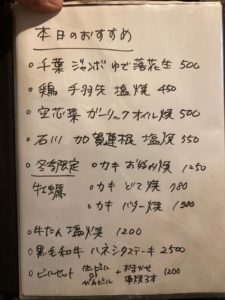 本日のおすすめ
○千葉 ジャンボゆで落花生 500
○鶏 手羽先 塩焼 450
○空芯菜 ガーリックオイル焼 500
○石川 加賀蓮根 塩焼 550
○冬季限定 ○カキ おばね焼 1250
牡蠣 ○カキ どて焼 980
○カキ バター焼 1300
○牛たん 塩焼 1200
○黒毛和牛 ハネシタステーキ 2500
○ビールセット 生ビール or びんビール + おまかせ 串焼3本 1200